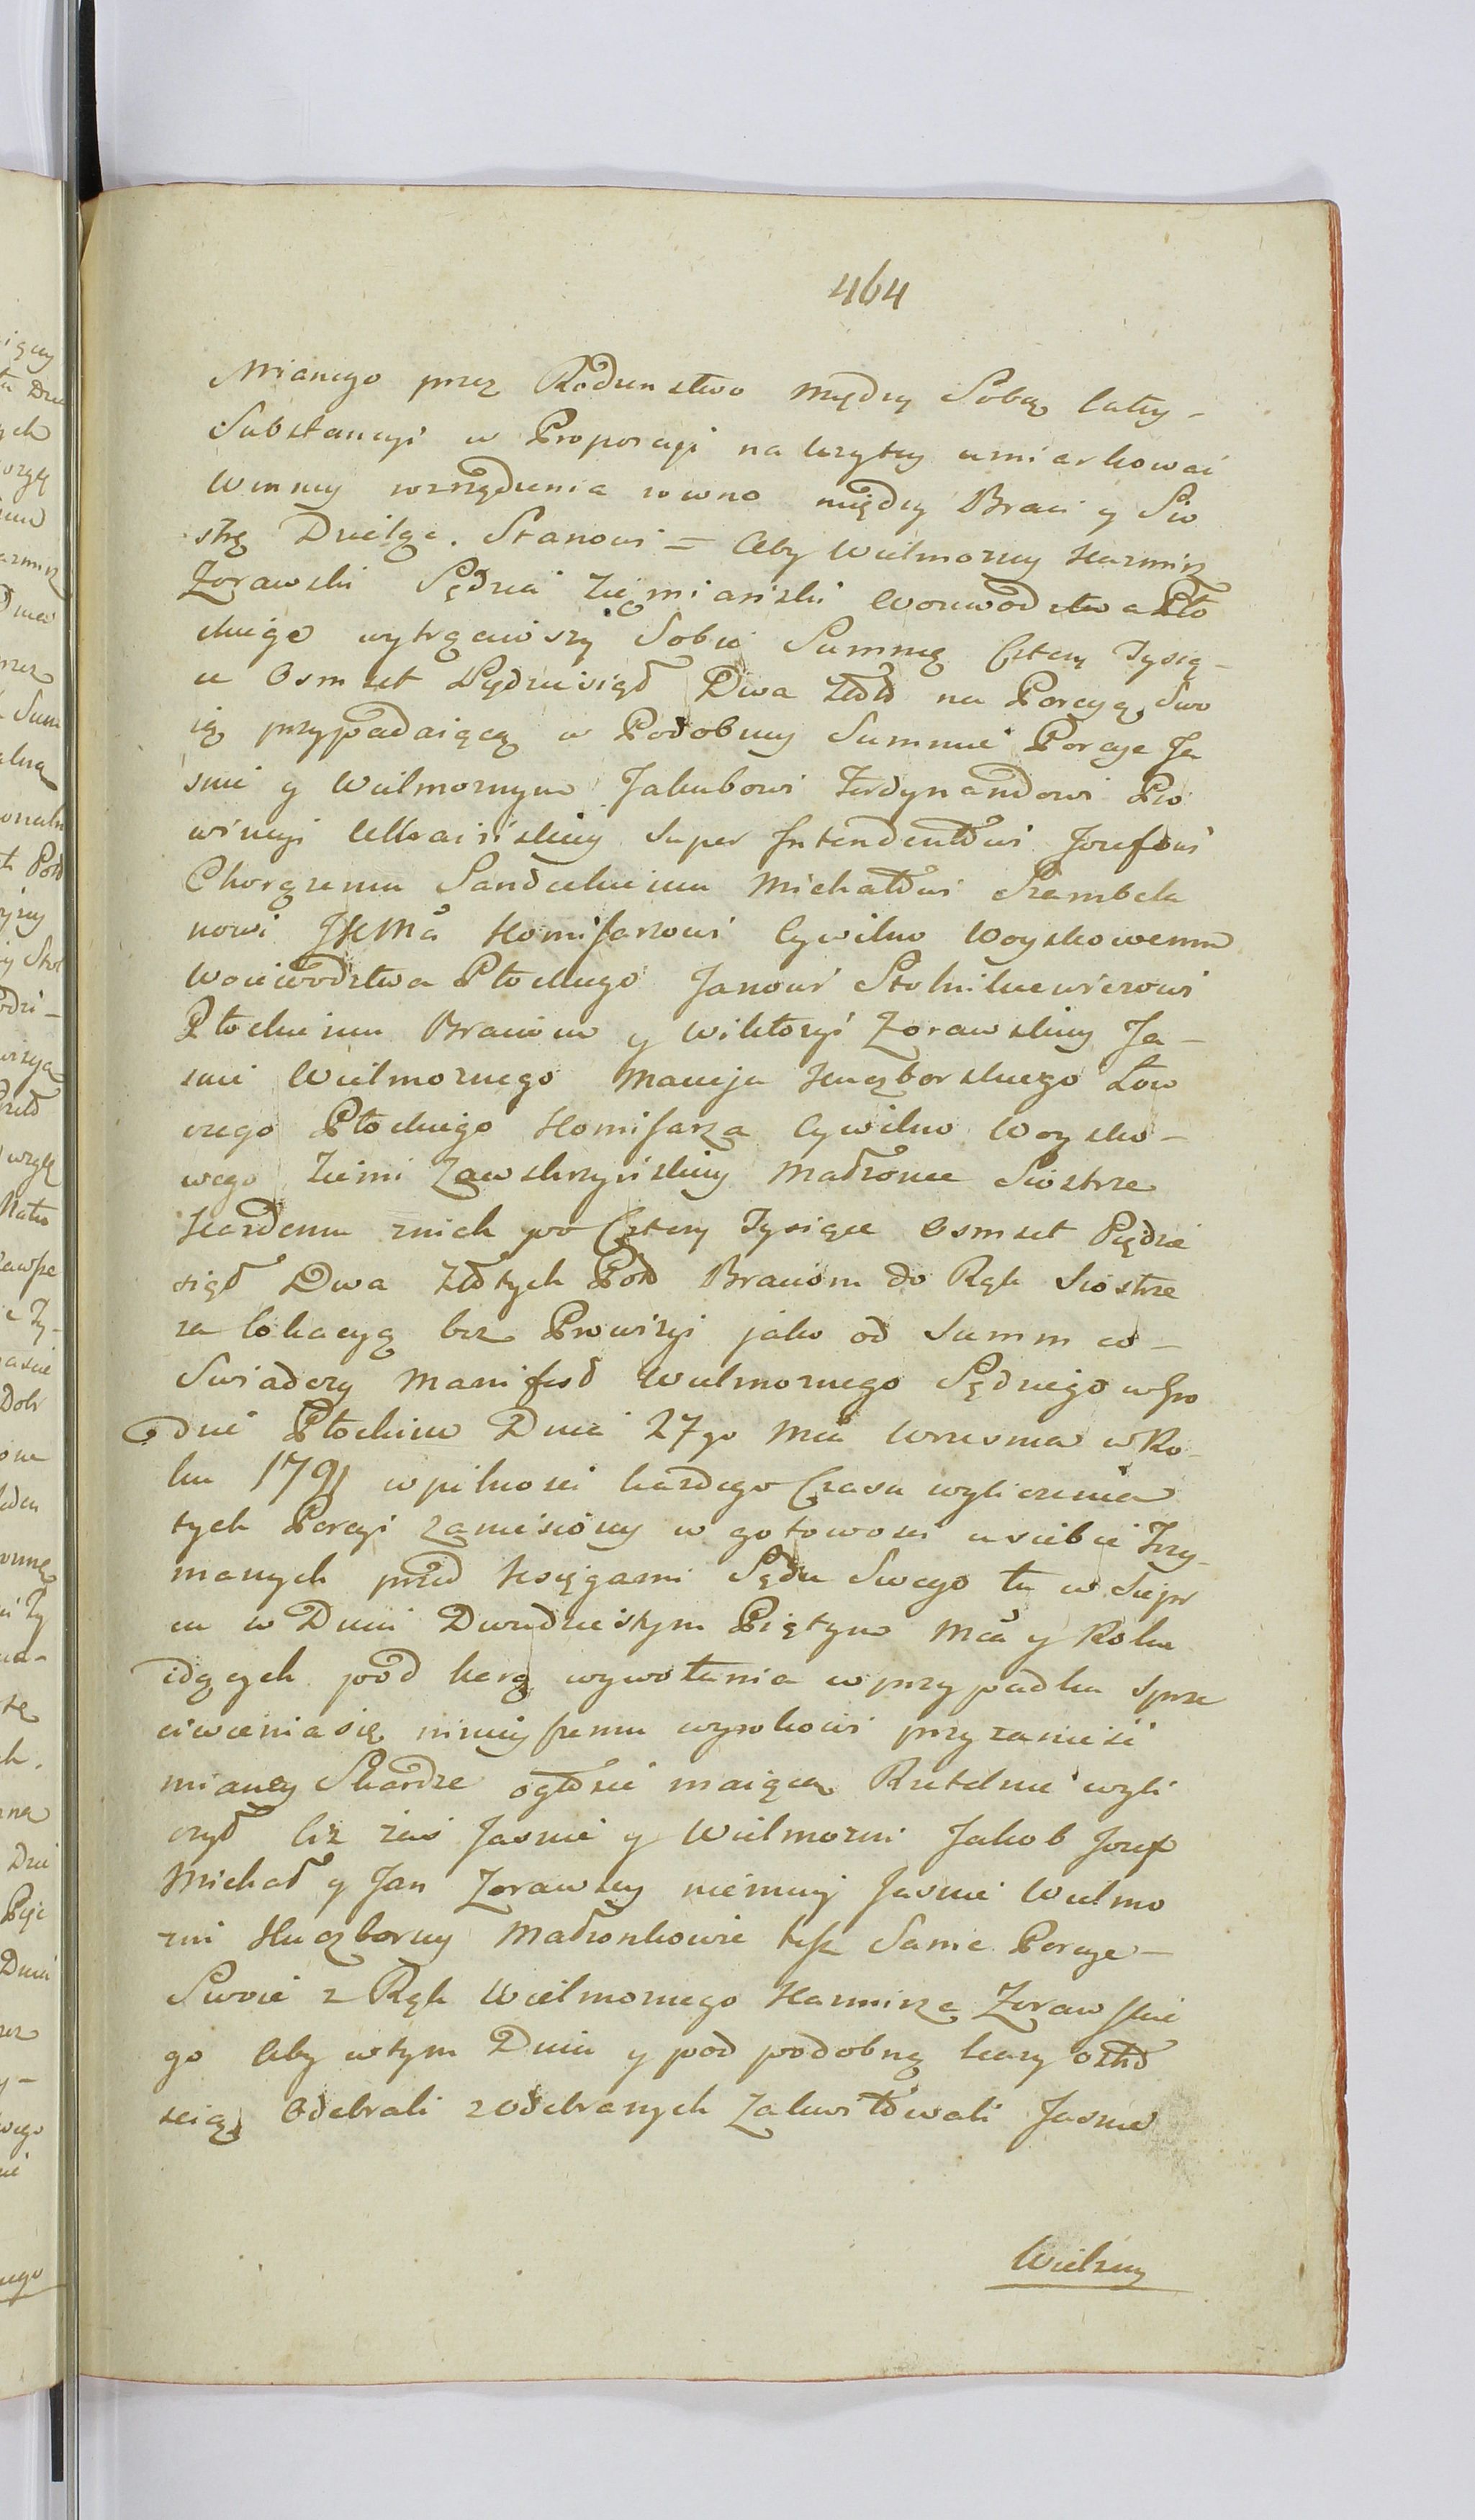 464
Mianego przez Rodzenstwo między Sobą Całey -
Substancyi w Proporcyi na krzytey umiarkować
Winney wzrządzenia rowno między Braci y Sio
strę Dzieląc. Stanowi = Aby Wielmozny Kazmirz
Zorawski Sędzia Ziemianski Woiewodztwa Pło
ckiego wytrąciwszy Sobie Summę Cztery Tysią -
ce Osmset Pędziesiąt Dwa Złłt na Porcyą Swo
ią przypadaiącą w Podobney Summie Porcye Ja
snie y Wielmoznym Jakubowi Ferdynandowi Pro
wincyi Ukrainskiey Super Intendentowi Jozefowi
Chorązemu Sandeckiemu Michałowi Szambela
nowi JKMci Komisarzowi Cywilno Woyskowemu
Woiewodztwa Płockiego Janowi Stolnikiewiczowi
Płockiemu Braciom y Wiktoryi Zorawskiey Ja -
snie Wielmoznego Macieja Kuczborskiego Łow
czego Płockiego Komisarza Cywilno Woysko -
wego Ziemi Zawskrzynskiey Małżonce Siostrze
Kazdemu znich po Cztery Tysiące Osmset Pędzie
siąt Dwa Złłtych Pol Braciom do Rąk Siostrze
za lokacyą bez Prowizyi jako od Summ co -
Swiadczy Manifest Wielmoznego Sędziego w Gro
dzie Płockim Dnia 27go Mca Wrzesnia w Ro -
ku 1791 w pilnosci kazdego Czasu wyliczenia
tych Porcyi zaniesiony w gotowosci u siebie Trzy -
manych przed Księgami Sądu Swego tu w Sierp
cu w Dniu Dwudziestym Piątym Mca y Roku
idących pod karą wywołania w przypadku sprze
ciwienia się ninieyszemu wyrokowi przy zaniesi
mianey Skardze ogłosić maiącą Rzetelnie wyli
czył Ciz zas Jasnie y Wielmozni Jakob Jozef
Michał y Jan Zorawscy niemniey Jasnie Wielmo
zni Kuczborscy Małzonkowie tesz Same Porcye -
Swoie z Rąk Wielmoznego Kazmirza Zorawskie
go Aby wtym Dniu y pod podobną kary ostro
scią Odebrali zodebranych Zakwitowali Jasnie
Wielzny